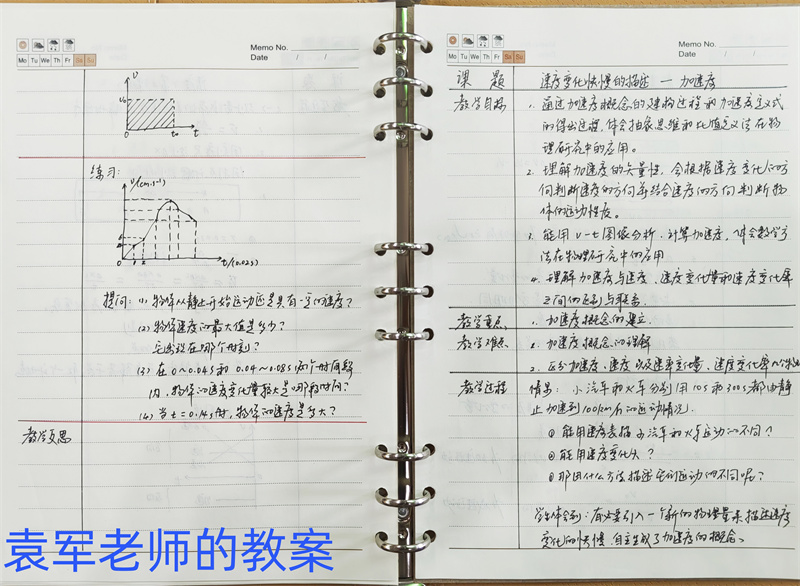 Memo No.
Date / /
Mo Tu We Th Fr Sa Su
v
v₀
0
t₀
t
练习:
v/(cm·s⁻¹)
0
1
2
t/(0.02s)
提问: (1) 物体从静止开始运动还是具有一定的速度?
(2) 物体速度的最大值是多少?
它出现在哪个时刻?
(3) 在0~0.04s和0.04~0.08s两个时间段
内,物体的速度变化量较大是哪段时间?
(4) 当t=0.14s时,物体的速度是多大?
教学反思
袁军老师的教案
Memo No.
Date / /
Mo Tu We Th Fr Sa Su
课题 速度变化快慢的描述 — 加速度
教学目标 1. 通过加速度概念的建构过程和加速度定义式
的得出过程,体会抽象思维和比值定义法在物
理研究中的应用。
2. 理解加速度的矢量性,会根据速度变化的方
向判断速度的方向并结合速度的方向判断物
体的运动性质。
3. 能用v-t图像分析、计算加速度,体会数学方
法在物理研究中的应用
4. 理解加速度与速度、速度变化量和速度变化率
之间的区别与联系
教学重点 1. 加速度概念的建立.
教学难点 1. 加速度概念的理解
2. 区分加速度、速度以及速率变量、速度变化率
教学过程 情景: 小汽车和火车分别用10s和300s都由静
止加速到100km/h的运动情况.
① 能用速度表描小汽车和火车运动的不同?
② 能用速度变化大?
③ 那用什么方法描述它们运动的不同呢?
学生体会到:有必要引入一个新的物理量来描述速度
变化的快慢,自主生成了加速度的概念。